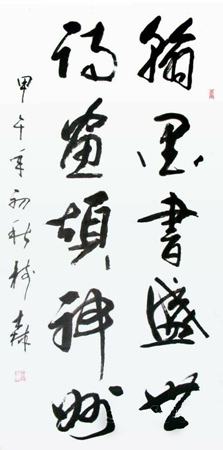 翰墨書盛世
詩畫頌神州
甲午年初秋樹森